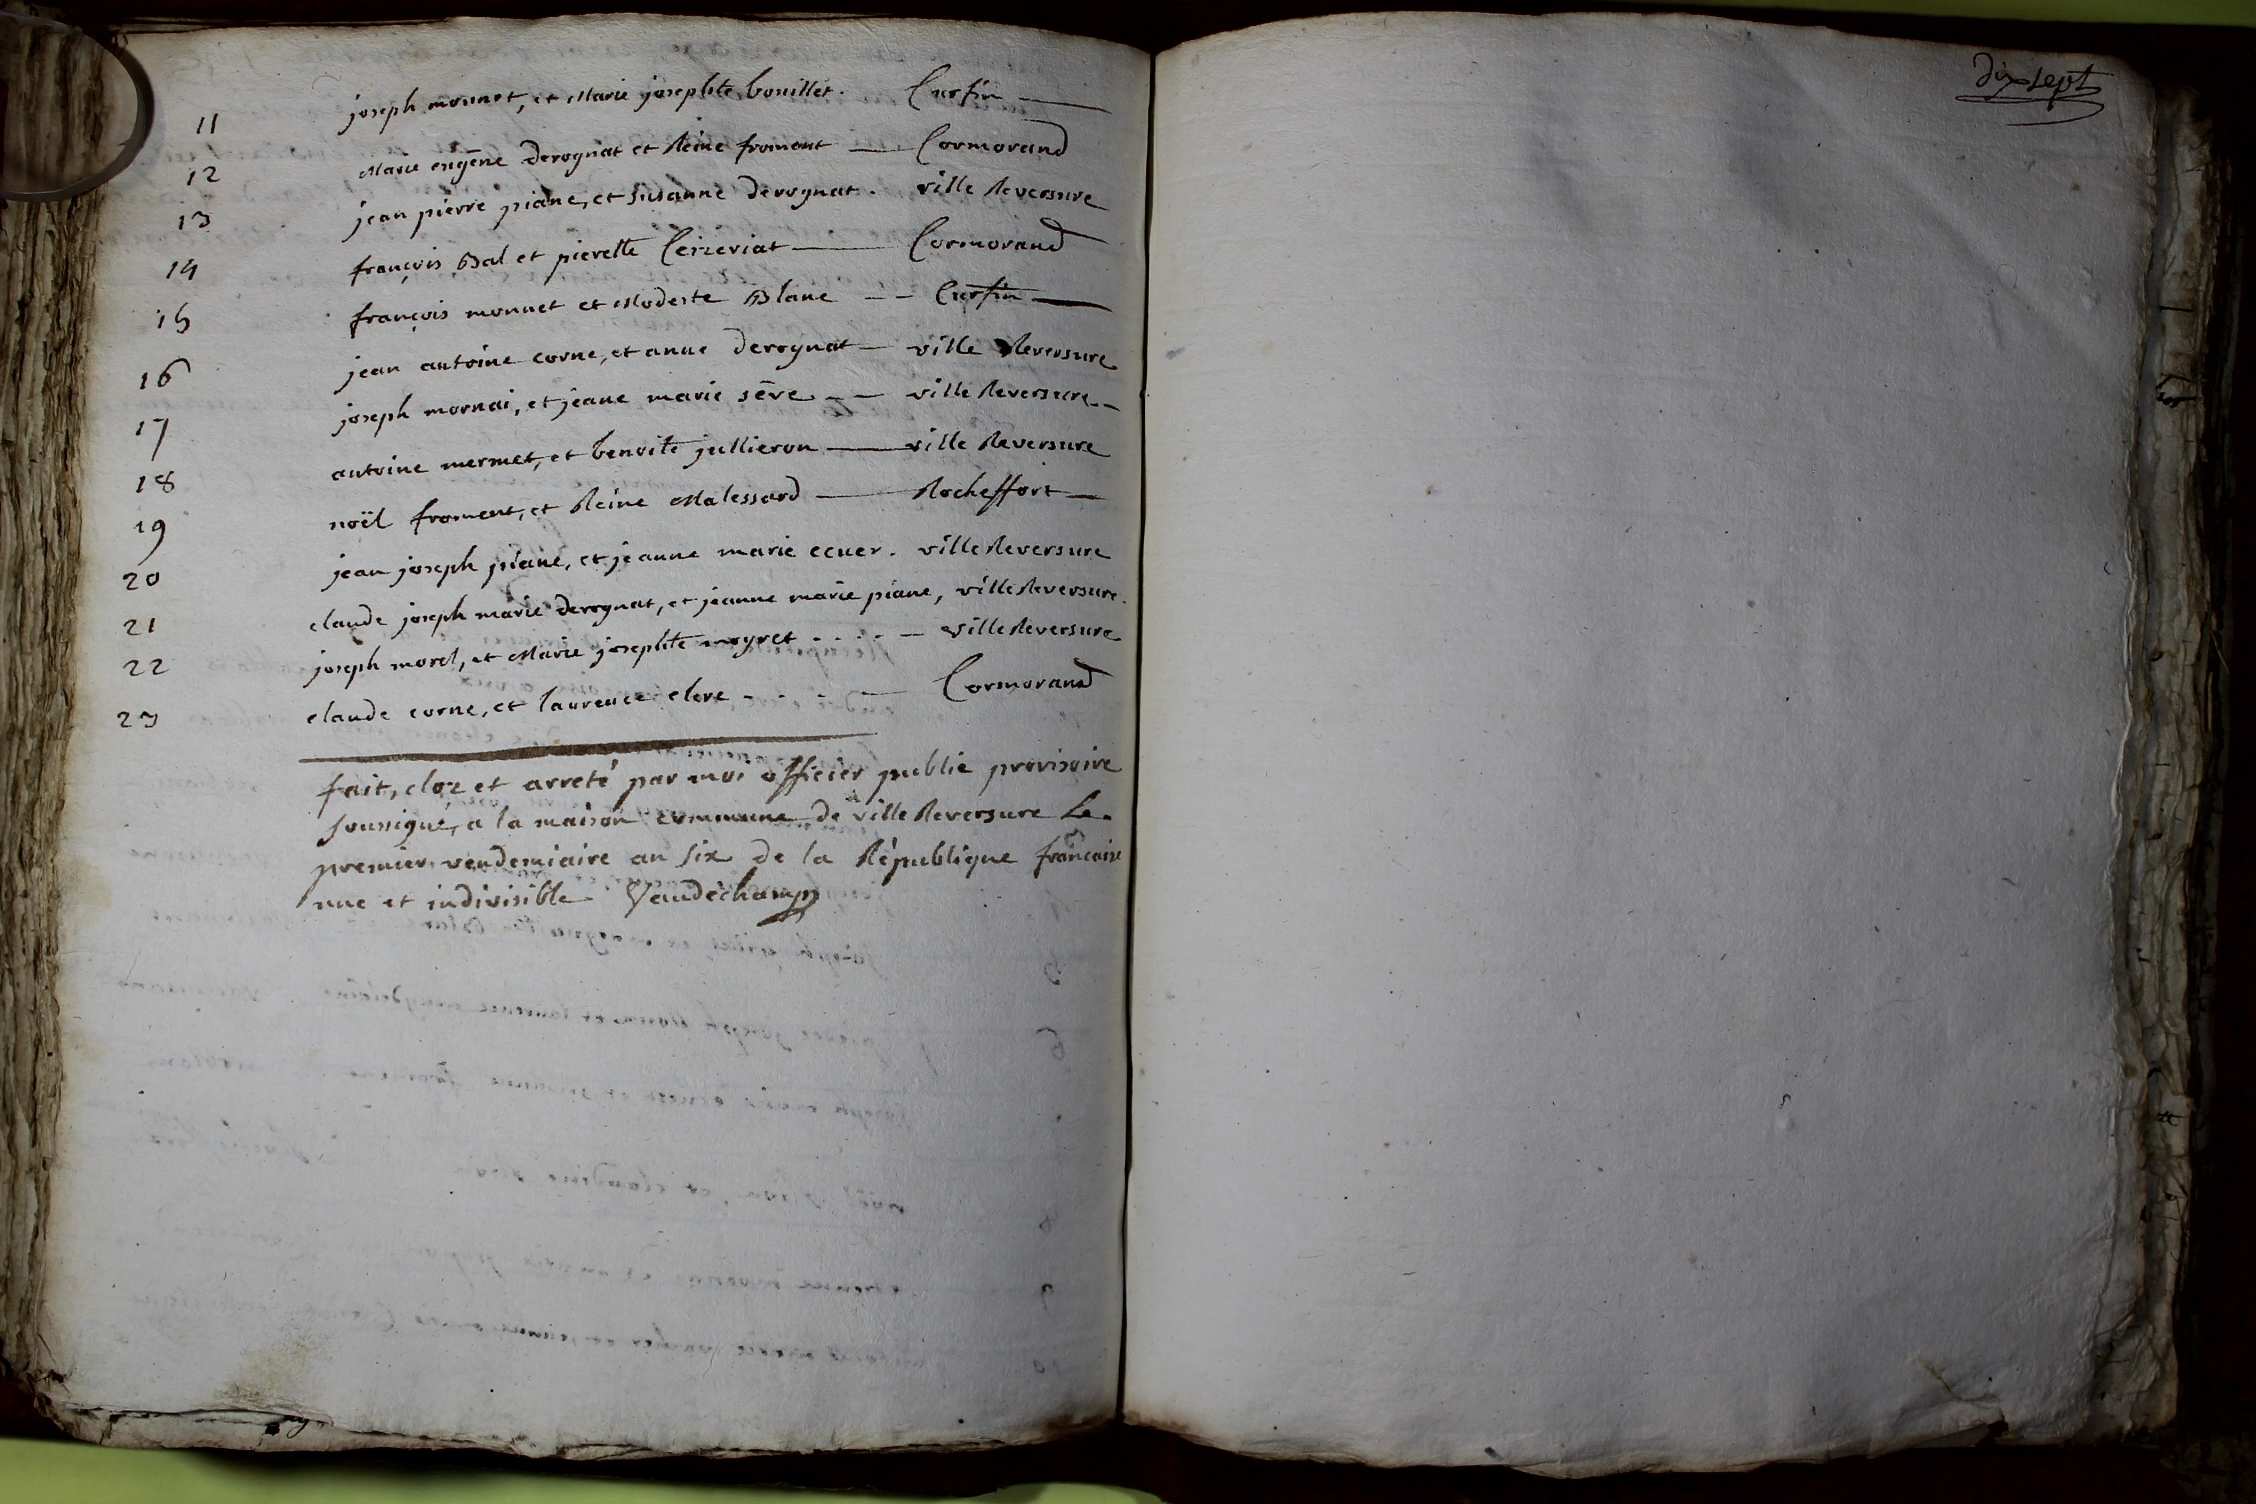 dix sept
11 joseph monnet, et Marie josephte bouillet. Curfin
12 Marie eugêne derognat et Reine froment Cormorand
13 jean pierre piane, et susanne derognat. ville Reversure
14 françois Bal et pierette Ceizeriat Cormorand
15 françois monnet et Modeste Blanc Curfin
16 jean antoine corne, et anne derognat ville Reversure
17 joseph mornai, et jeane marie sêve ville Reversure
18 antoine mermet, et benoite jullieron ville Reversure
19 noël froment, et Reine Malessard Rocheffort
20 jean joseph piane, et jeanne marie ecuer. ville Reversure
21 claude joseph marie derognat, et jeanne marie piane, ville Reversure.
22 joseph morel, et Marie josephte moyret .... ville Reversure
23 claude corne, et laurence clerc .... Cormorand
fait, cloz et arreté par moi officier public provisoire
soussigné, a la maison commune de ville Reversure le
premier vendemiaire an six de la République francaise
une et indivisible Vaudechamp